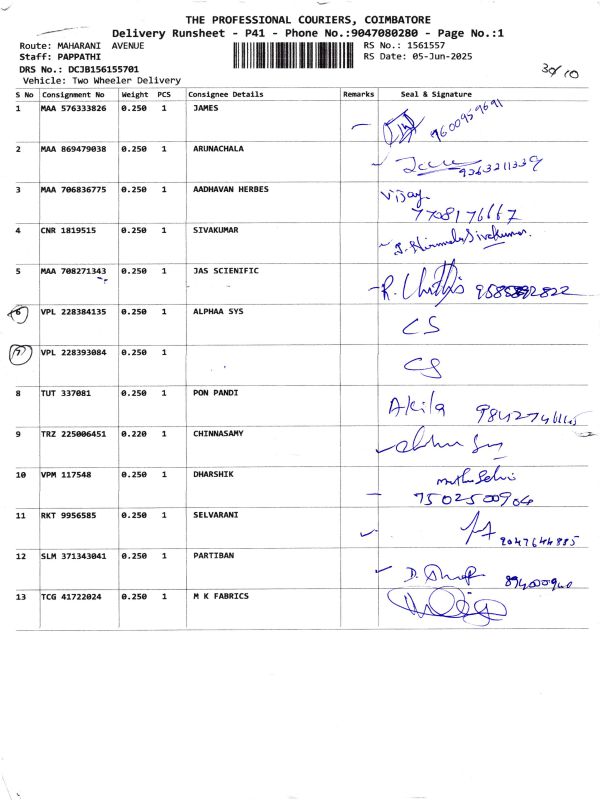 THE PROFESSIONAL COURIERS, COIMBATORE
Delivery Runsheet - P41 - Phone No.:9047080280 - Page No.:1
Route: MAHARANI AVENUE RS No.: 1561557
Staff: PAPPATHI RS Date: 05-Jun-2025
DRS No.: DCJB156155701
Vehicle: Two Wheeler Delivery
S No Consignment No Weight PCS Consignee Details Remarks Seal & Signature
1 MAA 576333826 0.250 1 JAMES 9600959691
2 MAA 869479038 0.250 1 ARUNACHALA 9363211339
3 MAA 706836775 0.250 1 AADHAVAN HERBES Vijay
7708176667
4 CNR 1819515 0.250 1 SIVAKUMAR
5 MAA 708271343 0.250 1 JAS SCIENIFIC
6 VPL 228384135 0.250 1 ALPHAA SYS CS
7 VPL 228393084 0.250 1 CS
8 TUT 337081 0.250 1 PON PANDI Akila
9 TRZ 225006451 0.220 1 CHINNASAMY
10 VPM 117548 0.250 1 DHARSHIK
7502500904
11 RKT 9956585 0.250 1 SELVARANI
12 SLM 371343041 0.250 1 PARTIBAN
13 TCG 41722024 0.250 1 M K FABRICS